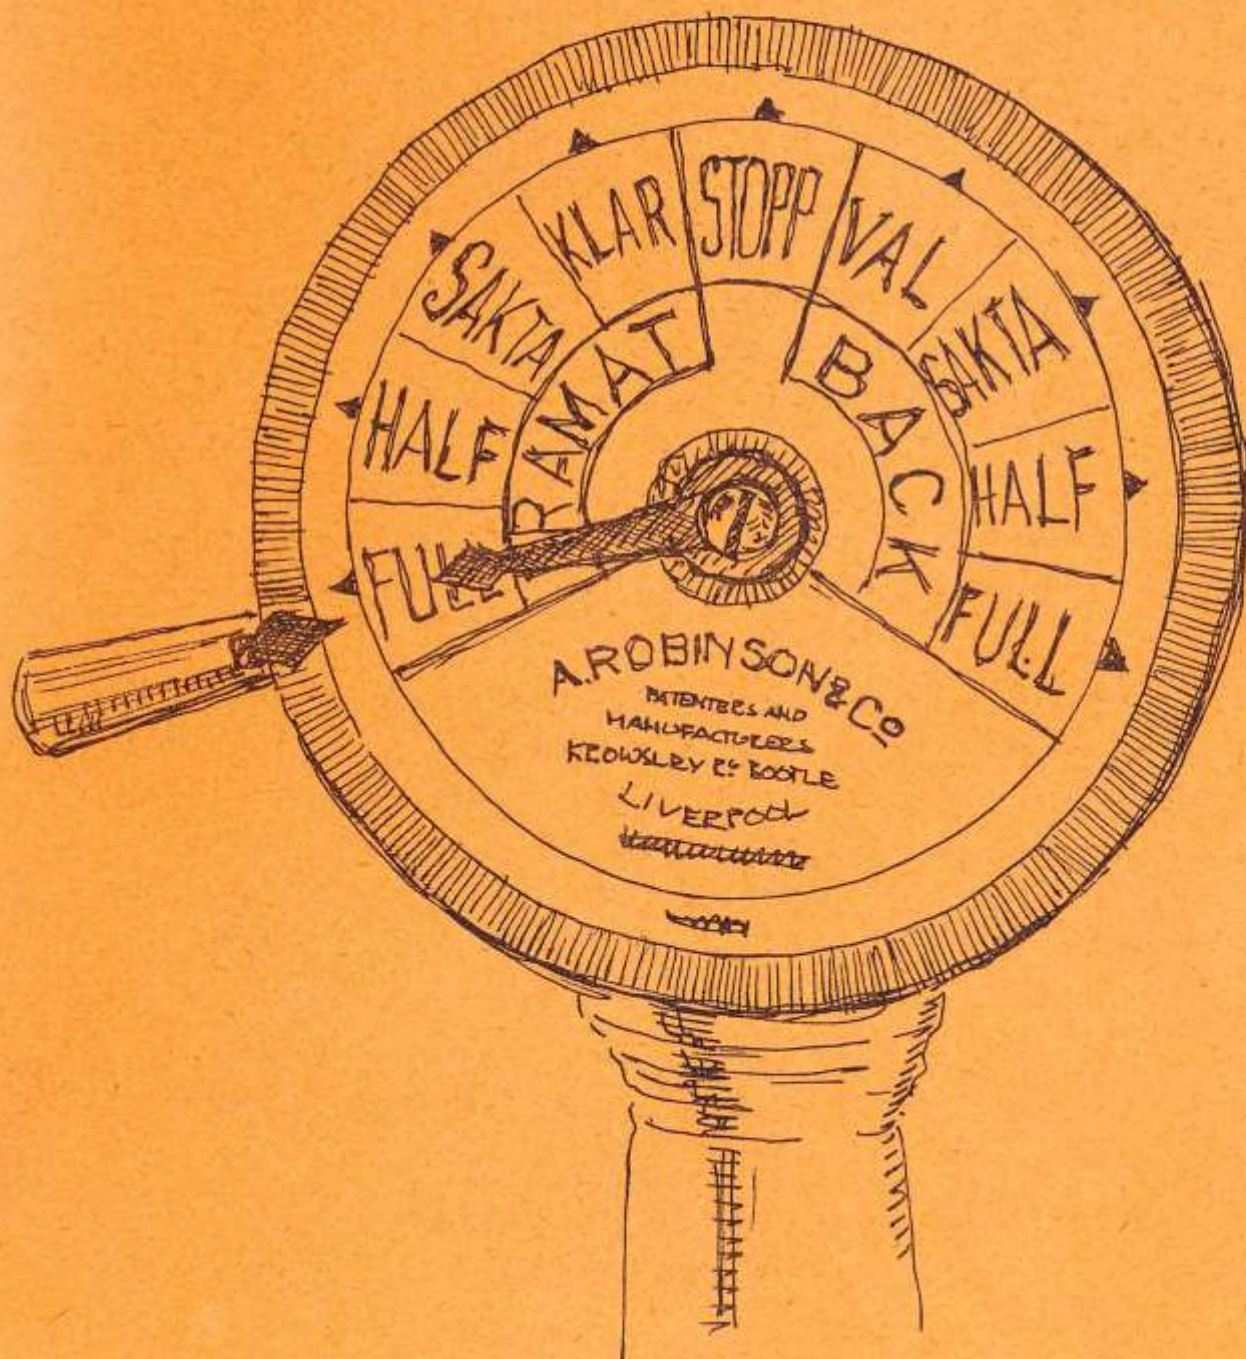 FULL
HALF
SAKTA
KLAR
STOPP
VAL
SAKTA
HALF
FULL
RAMAT
BACK
A.ROBINSON & Co
PATENTEES AND
MANUFACTURERS
KNOWSLEY Rd BOOTLE
LIVERPOOL